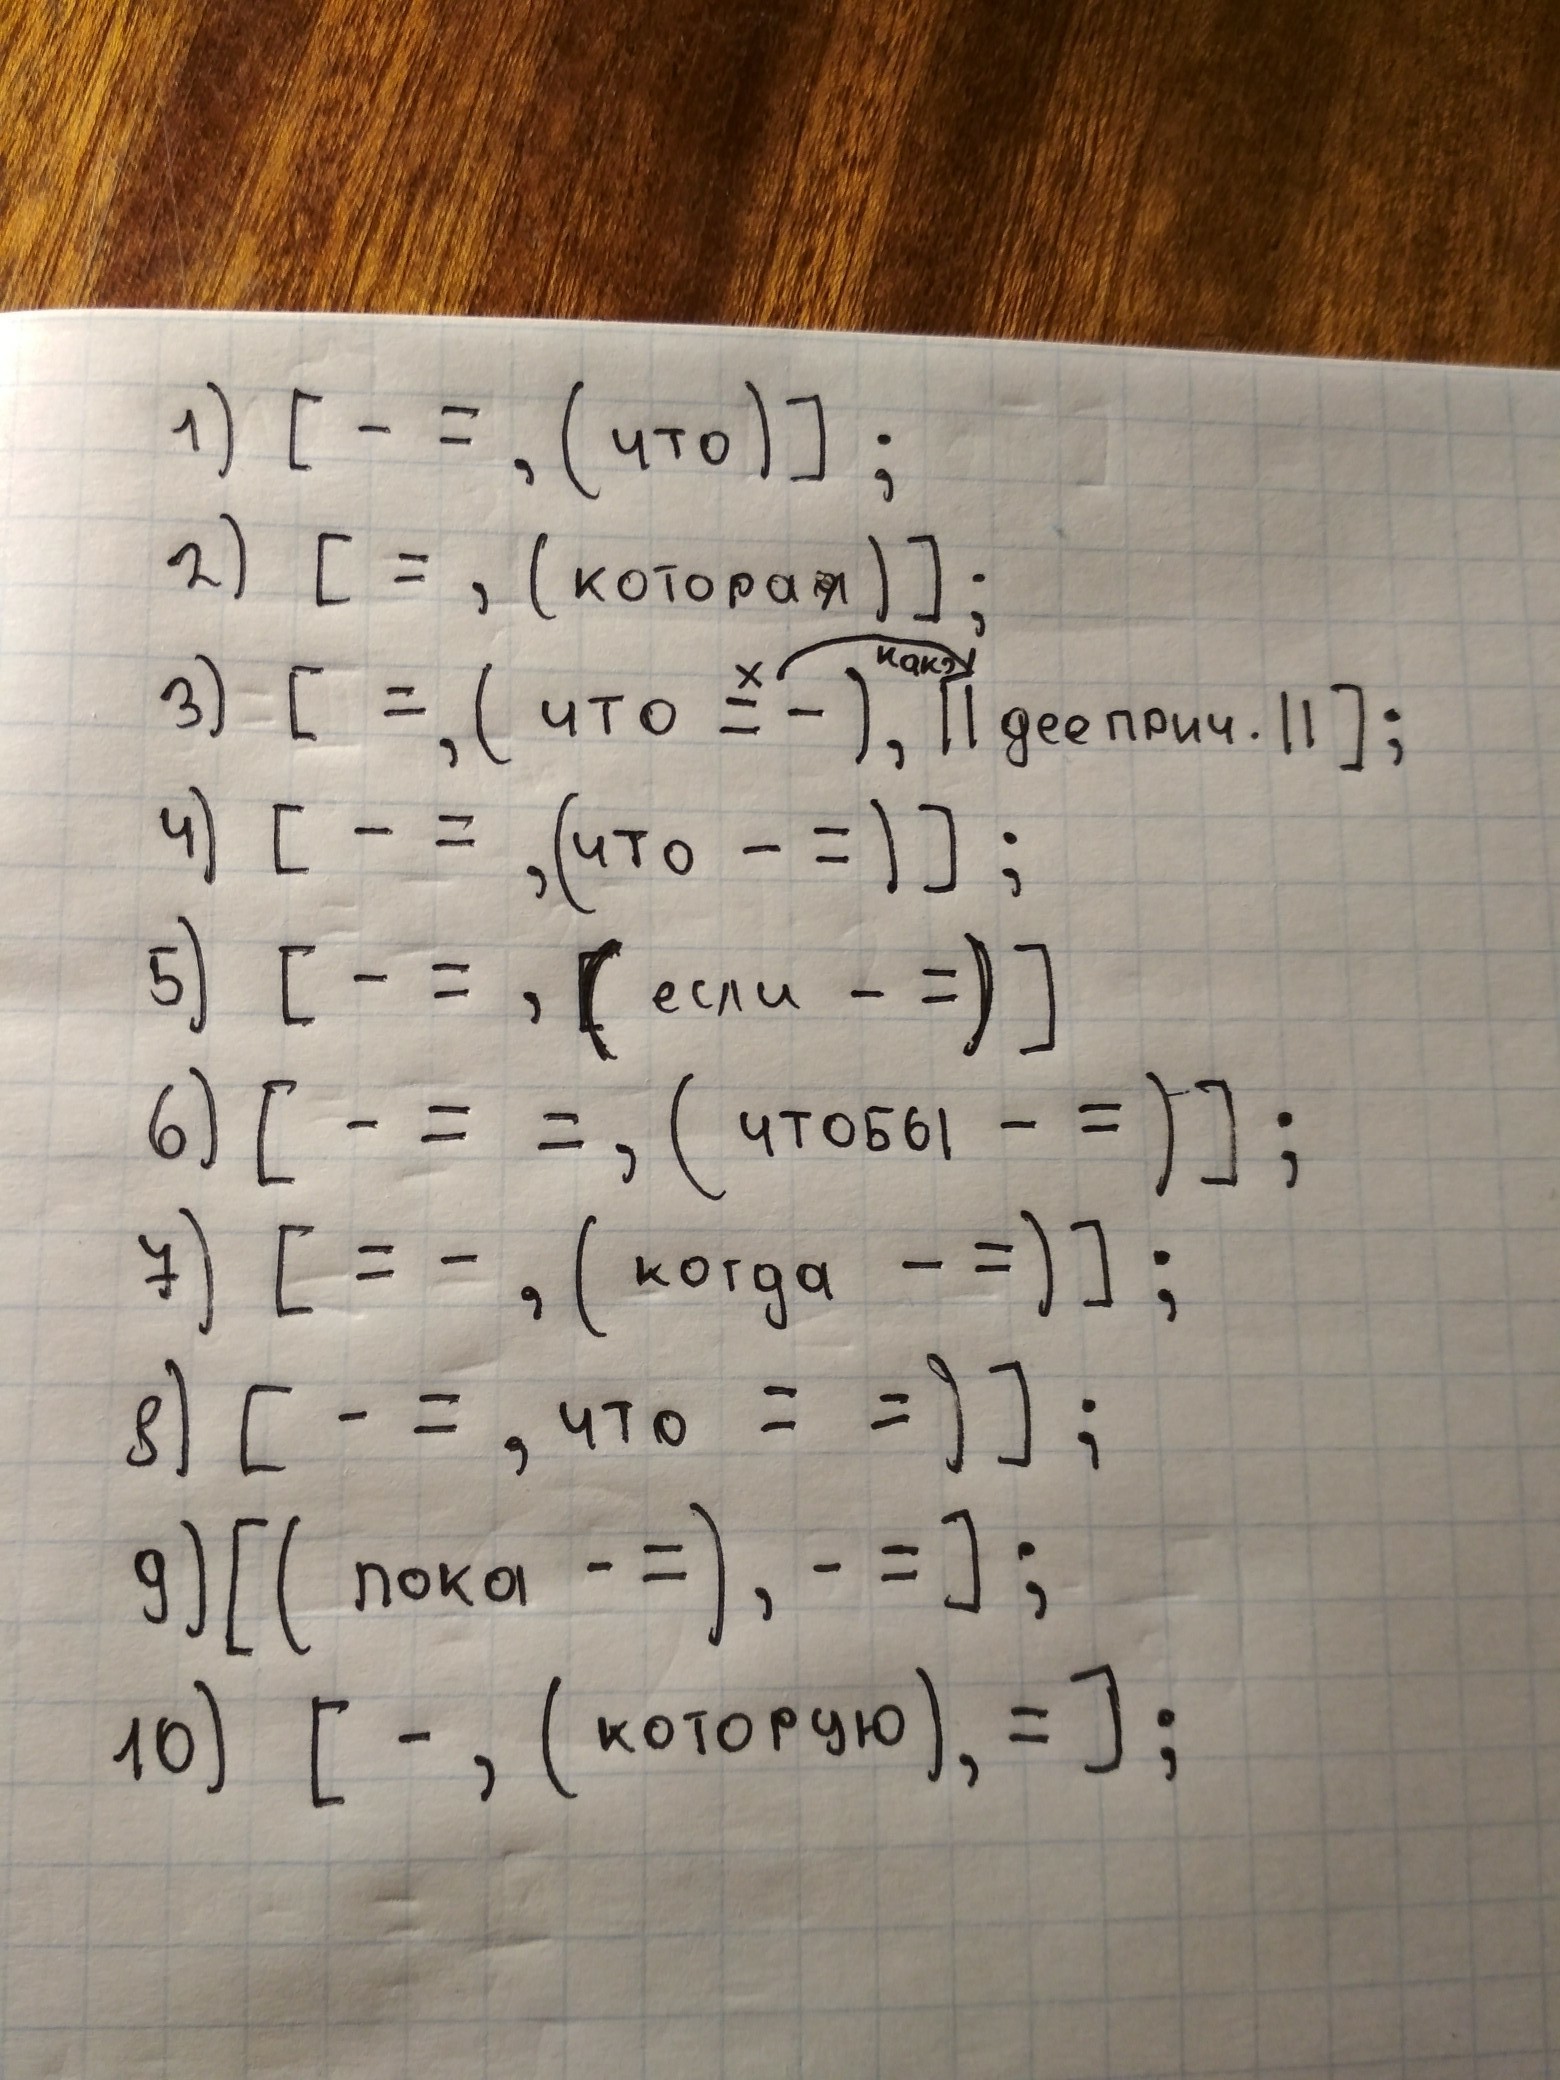 1) [ - = , ( что ) ] ;
2) [ = , ( которая ) ] ;
как?
3) [ = , ( что x = - ) , || дееприч. || ] ;
4) [ - = , ( что - = ) ] ;
5) [ - = , ( если - = ) ]
6) [ - = = , ( чтобы - = ) ] ;
7) [ = - , ( когда - = ) ] ;
8) [ - = , что = = ) ] ;
9) [ ( пока - = ) , - = ] ;
10) [ - , ( которую ) , = ] ;